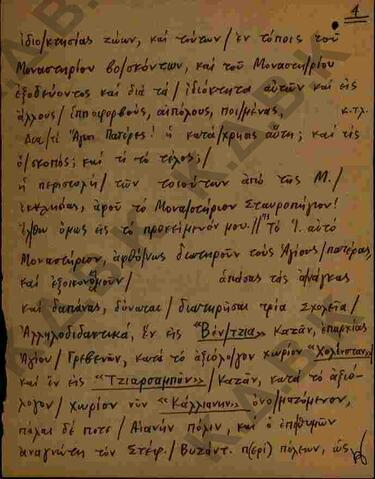 4
ἰδιο/κτησίας ζώων, καὶ τούτων/ ἐν τόποις τοῦ
Μοναστηρίου βο/σκόντων, καὶ τοῦ Μοναστη/ρίου
ἐξοδεύοντος καὶ διὰ τὰ/ ἰδιόκτητα αὐτῶν καὶ εἰς
ἄλλους/ ἱπποφορβούς, αἰπόλους, ποι/μένας, κ.τ.λ.
Δια/τί Ἅγιοι Πατέρες! ἡ κατά/χρησις αὕτη; καὶ τίς
ὁ/σκοπός; καὶ τί τὸ τέλος;/
ἡ περιστολὴ/ τῶν τοιούτων ἀπὸ τῆς Μ./
Ἐκκλησίας, ἀφοῦ τὸ Μονα/στήριον Σταυροπήγιον!
ἔλθω ὅμως εἰς τὸ προκείμενόν μου./ Τὸ Ἱ. αὐτὸ
Μοναστήριον, ἀφθό/νως διατηροῦν τοὺς Ἁγίους/πατέρας,
καὶ ἐξοικονομοῦν/ ἁπάσας τὰς ἀνάγκας
καὶ δαπάνας, δύναται/ διατηρῆσαι τρία Σχολεῖα/
Ἀλληλοδιδακτικά, ἓν εἰς "Βέν/τζια" Καζᾶν, ἐπαρχίας
Ἁγίου/ Γρεβενῶν, κατὰ τὸ ἀξιόλο/γον χωρίον "Χολένσταν"/
καὶ ἓν εἰς "Τζιαρσαμπᾶν"/ Καζᾶν, κατὰ τὸ ἀξιό-
λογον/ χωρίον νῦν "Κάλλιανην" ὀνο/μαζόμενον,
πάλαι δέ ποτε/ Αἰανὴν πόλιν, καὶ ὁ ἐπιθυμῶν
ἀναγνώτη τὸν Στέφ./ Βυζάντ. π(ερὶ) πόλεων, ὡς